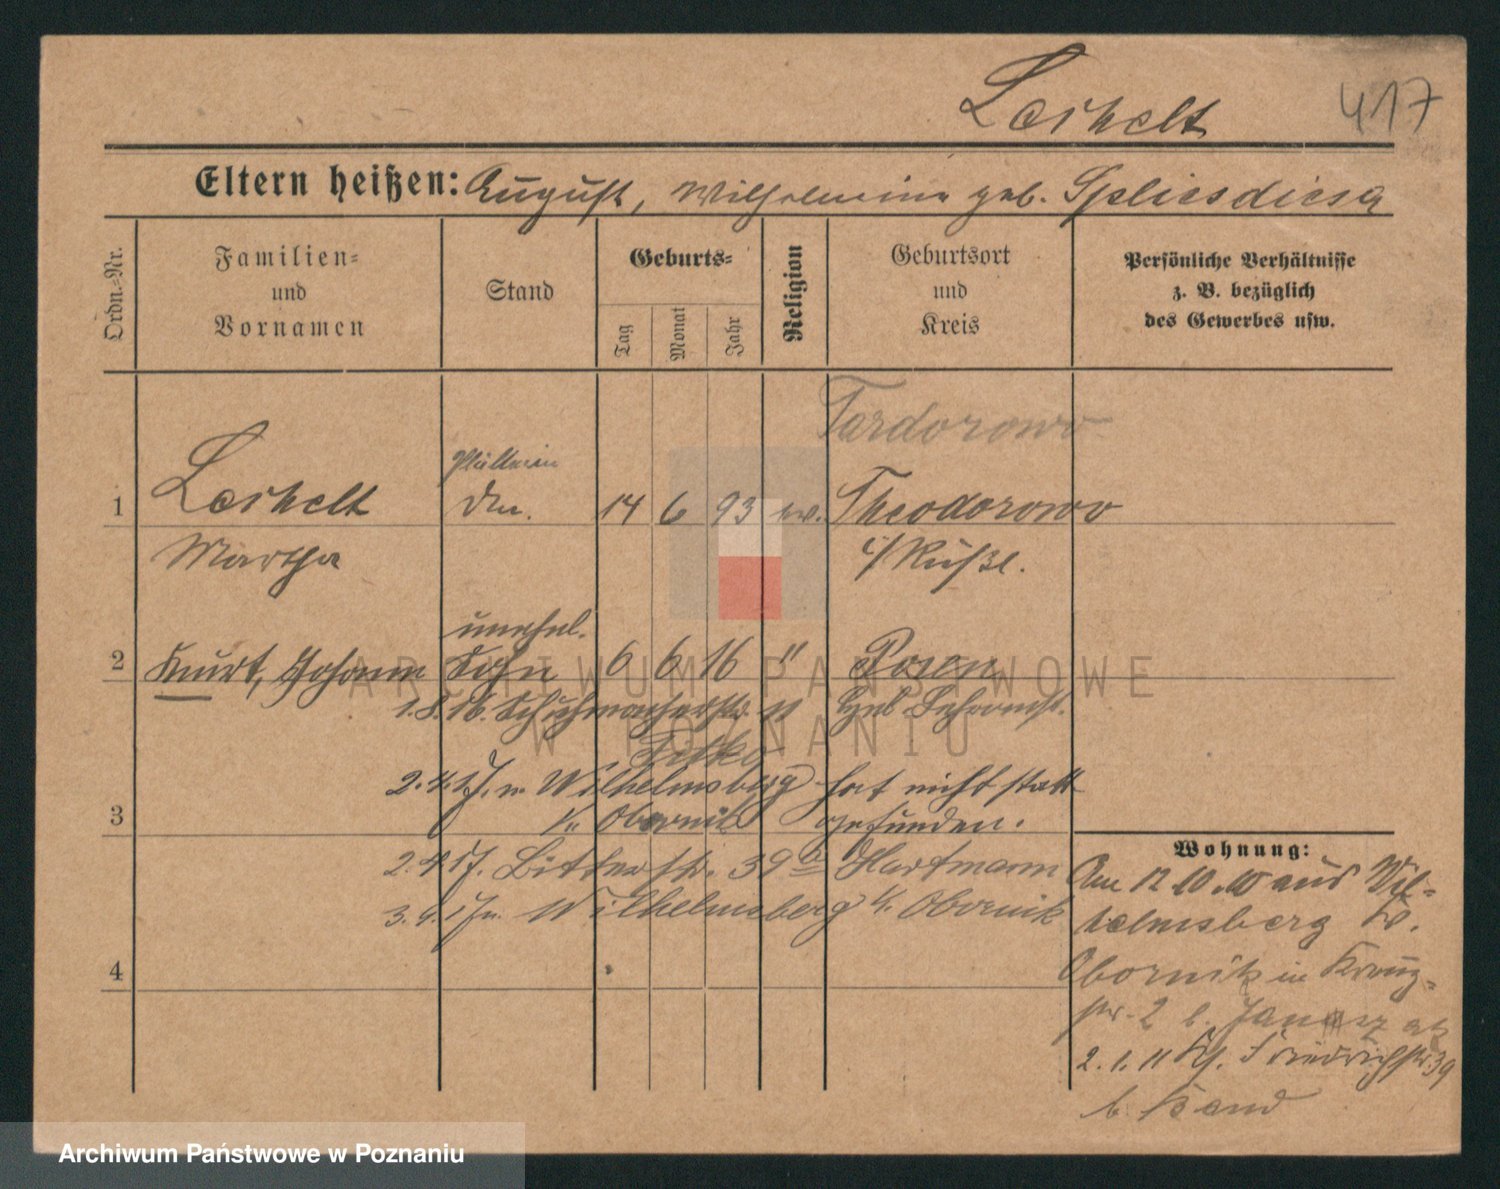 417
Eltern heißen: August, Wilhelmine geb.
Ordn.=Nr.
Familien=
und
Vornamen
Stand
Geburts=
Tag
Monat
Jahr
Religion
Geburtsort
und
Kreis
Persönliche Verhältnisse
z. B. bezüglich
des Gewerbes usw.
Tardorowo
1 14 6 93 ev. Theodorowo
Martha
unehel.
2 Kurt, Johann Sohn 6 6 16 " Posen
1.8.16. Schuhmacherstr. 11
2.4.17. n. Wilhelmsberg hat nicht statt
3 Kr. Obornik gefunden.
2.4.17. Bitterstr. 39a Hartmann
3.4.17 n. Wilhelmsberg Kr. Obornik
4
Wohnung:
Am 12.10.10 aus Wil=
helmsberg Kr.
Obornik in Kreuz=
str. 2 b.
2.1.11 Friedrichstr. 39
b.
ARCHIWUM PAŃSTWOWE
W POZNANIU
Archiwum Państwowe w Poznaniu